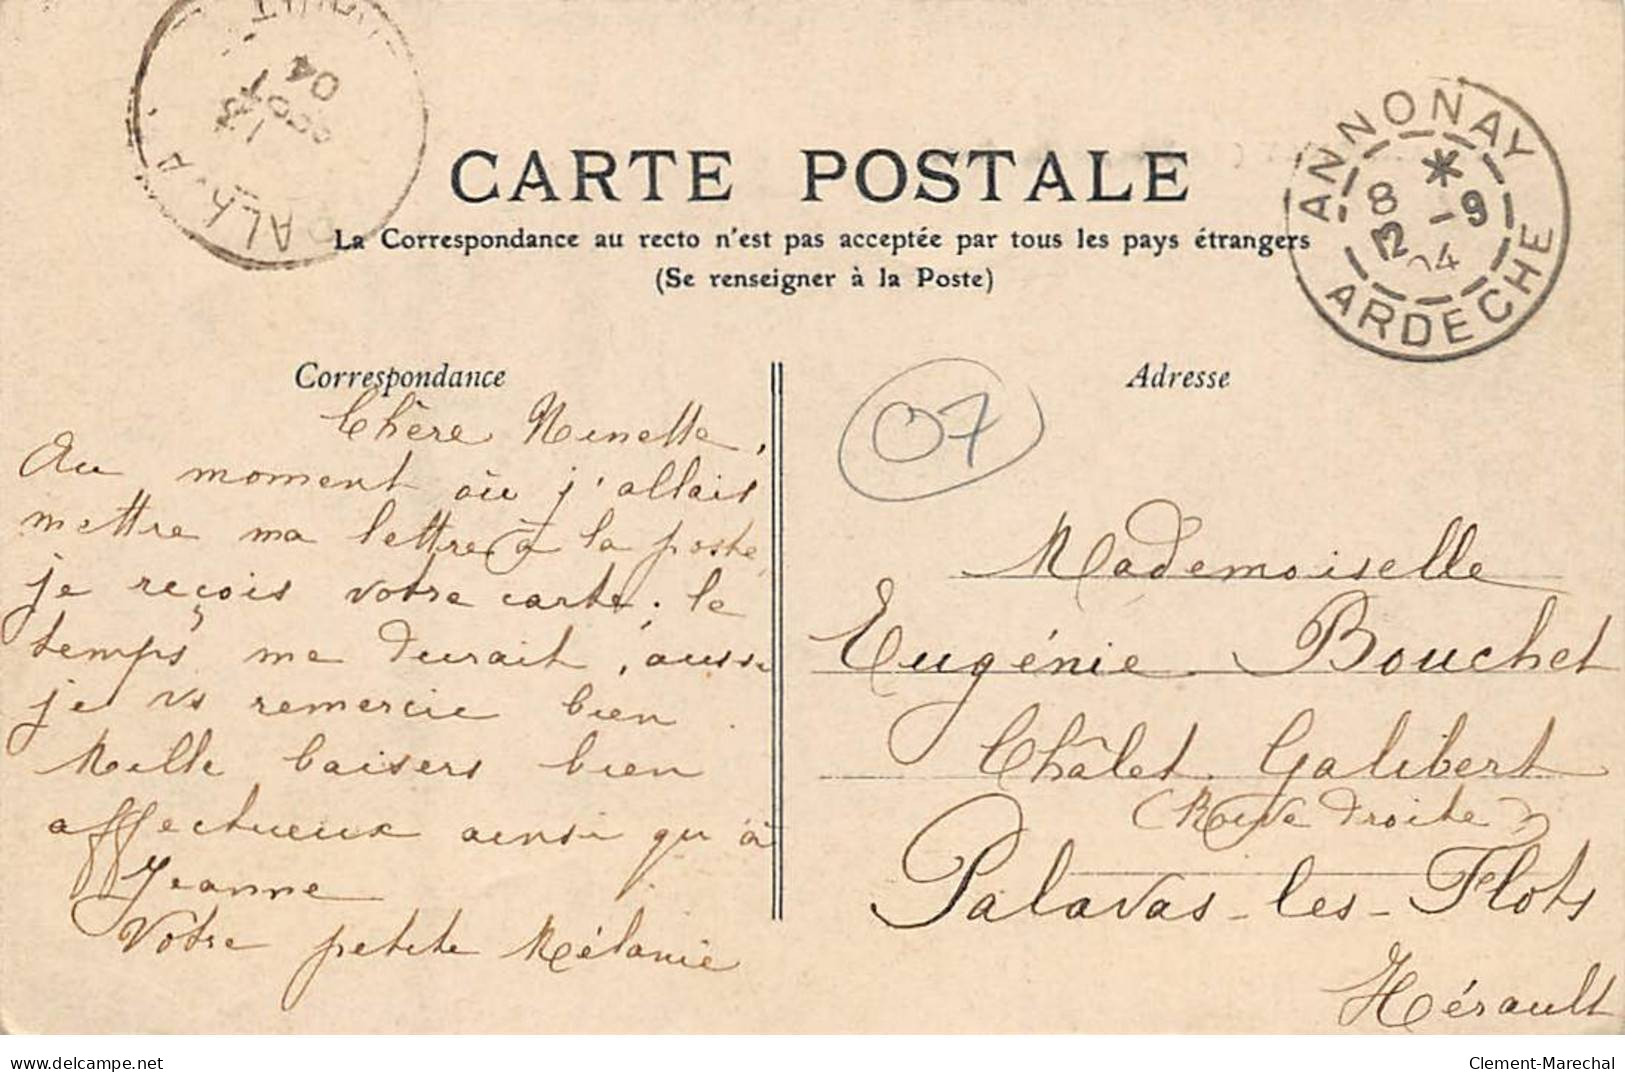 CARTE POSTALE
La Correspondance au recto n'est pas acceptée par tous les pays étrangers
(Se renseigner à la Poste)
ANNONAY
8 * -9
12 04
ARDECHE
13
AOUT
04
Correspondance
Chère Ninette,
Au moment où j'allais
mettre ma lettre à la poste,
je reçois votre carte; le
temps me durait, aussi
je vs remercie bien.
Mille baisers bien
affectueux ainsi qu'à
Jeanne
Votre petite Mélanie
Adresse
07
Mademoiselle
Eugénie Bouchet
Châlet Galibert
(Rive droite)
Palavas-les-Flots
Hérault
www.delcampe.net
Clement-Marechal